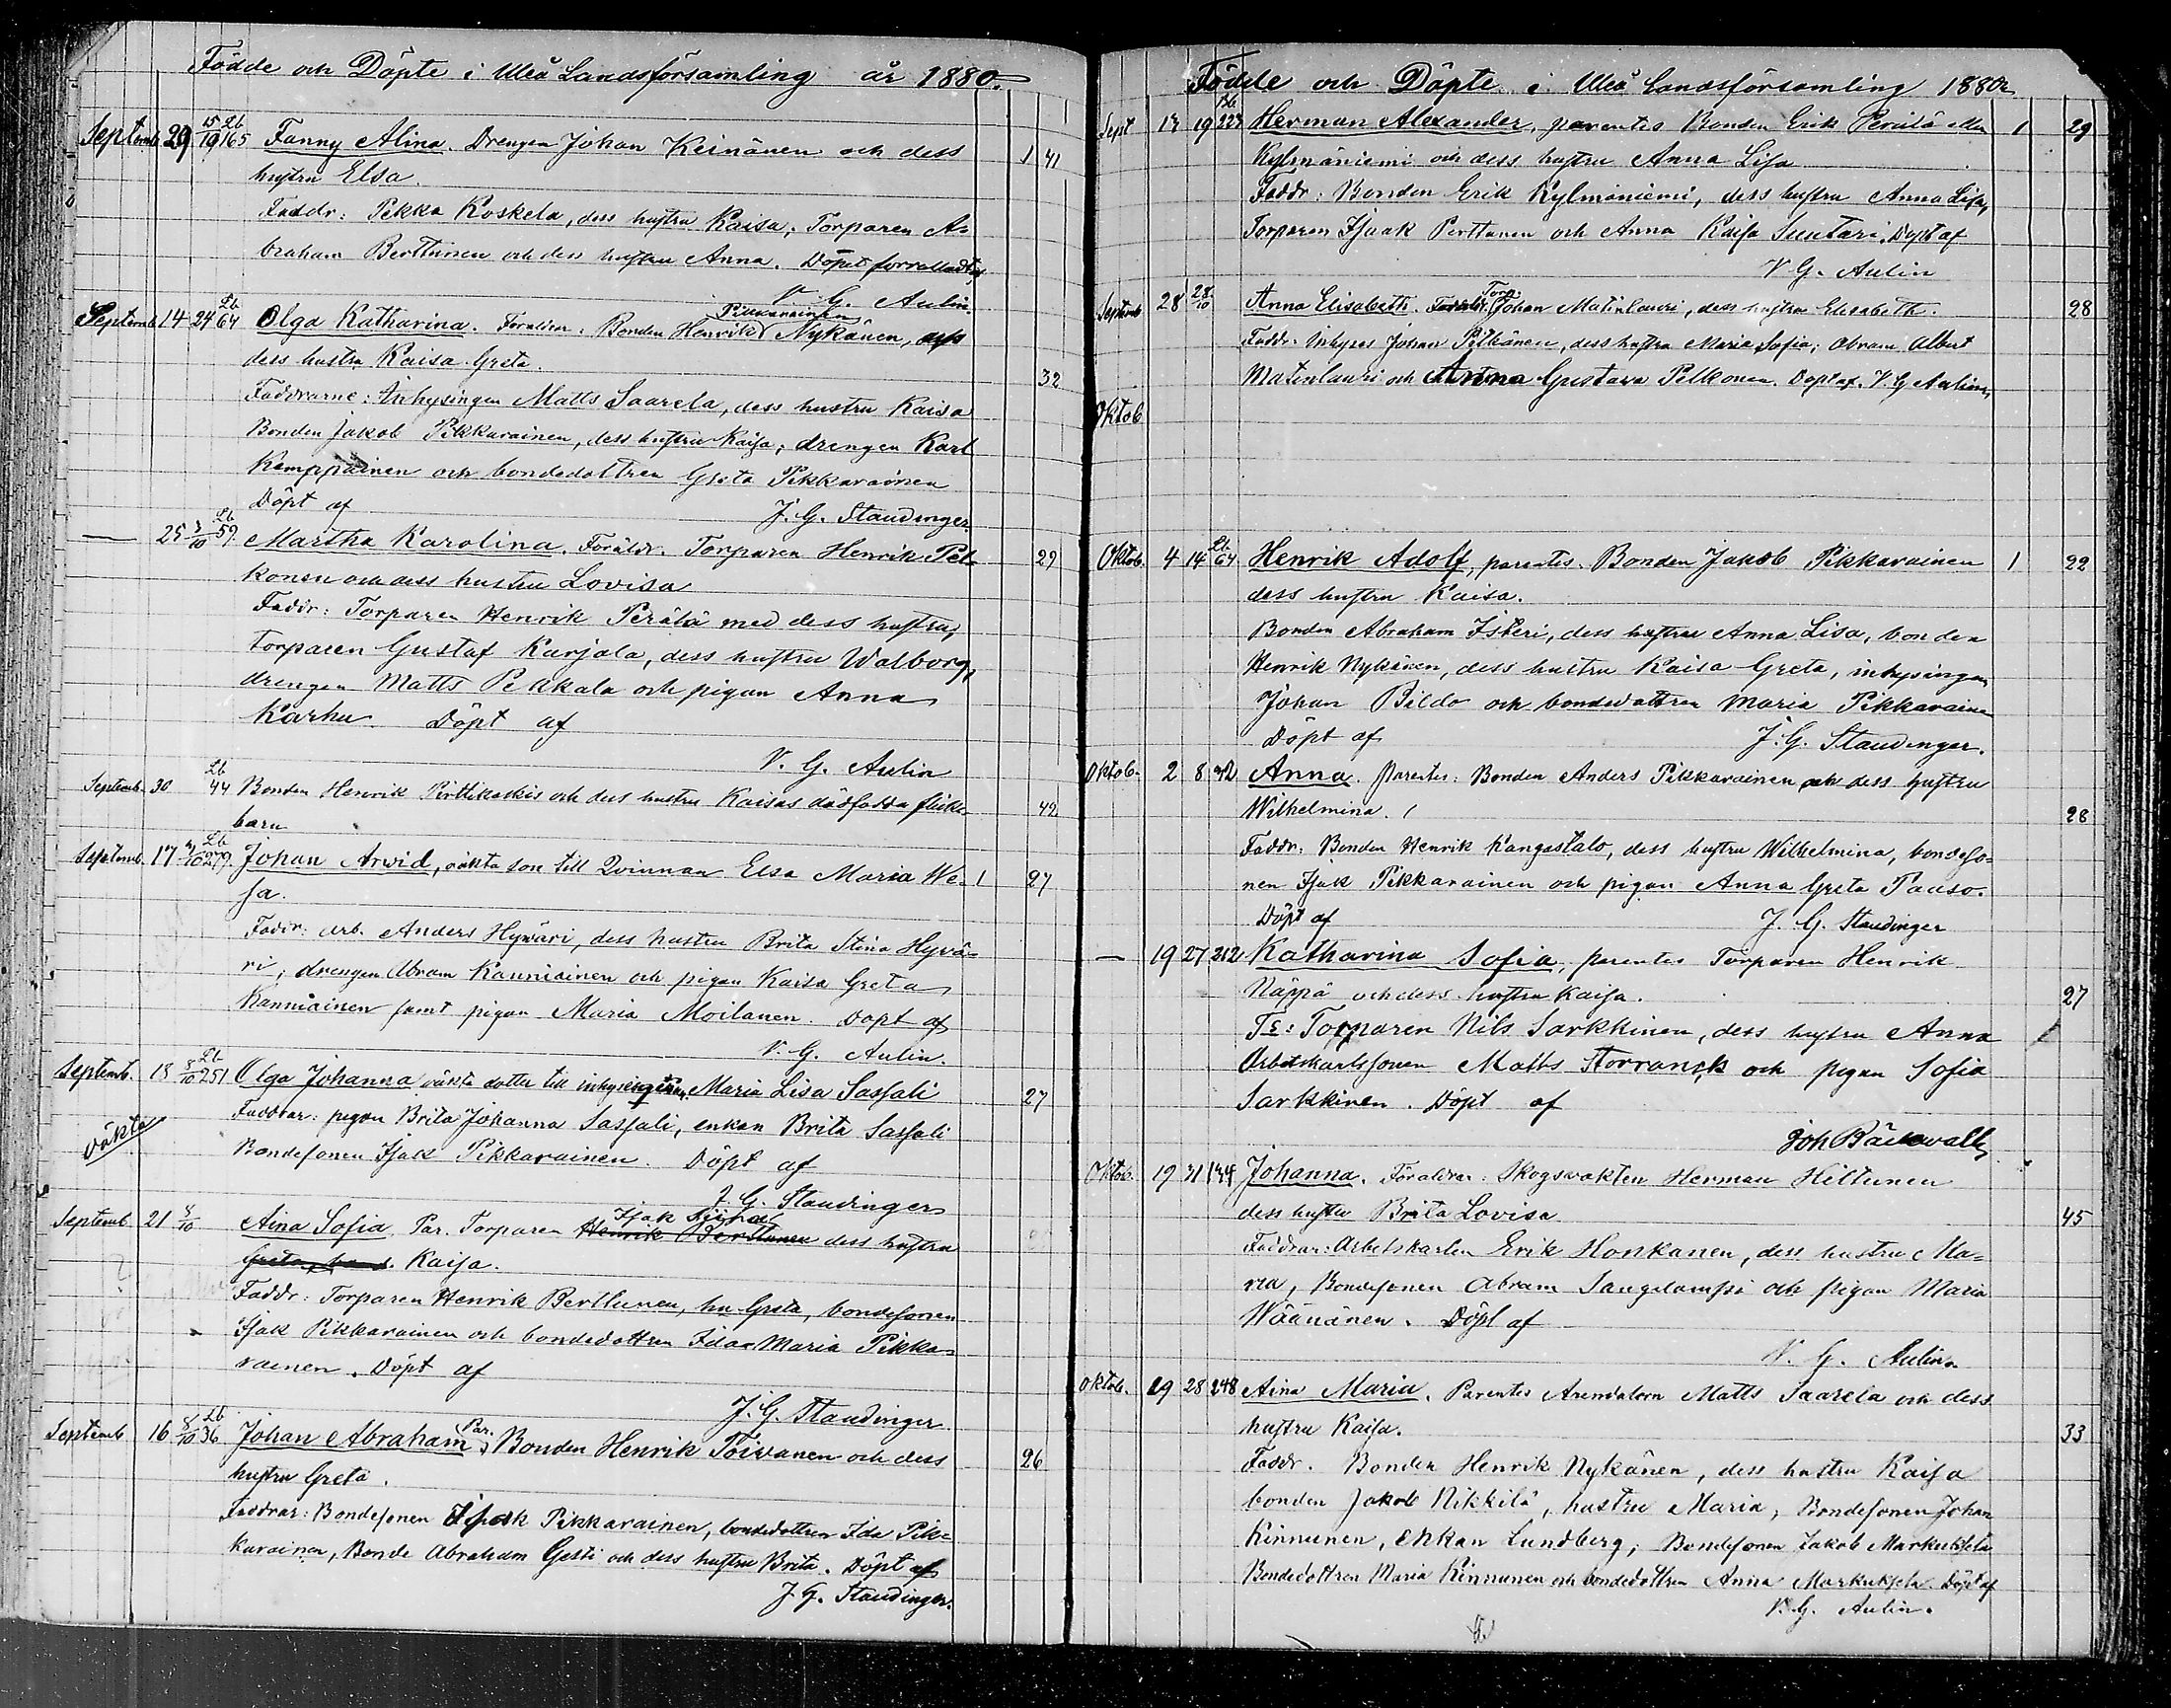 Födde och Döpte i Uleå Landsförsamling år 1880.
Septemb. 29 15/10 Lb 165 Fanny Alina. Drengen Johan Keinänen och dess 1 41
hustru Elsa.
Faddr: Pekka Koskela, dess hustru Kaisa, Torparen A-
braham Berttunen och dess hustru Anna. Döpt
V. G. Aulin.
Septemb. 14 24 Lb 64 Olga Katharina. Föräldrar: Bonden Henrik Pikkarainen Nykänen,
dess hustru Kaisa Greta. 32
Faddrarne: Inhysingen Matts Saarela, dess hustru Kaisa
Bonden Jakob Pikkarainen, dess hustru Kaisa; drengen Karl
Kemppainen och bondedottren Greta Pikkarainen
Döpt af J. G. Staudinger.
— 25 3/10 Lb 59 Martha Karolina. Föräldr. Torparen Henrik Pel- 29
konen och dess hustru Lovisa
Faddr: Torparen Henrik Perälä med dess hustru,
torparen Gustaf Karjala, dess hustru Walborg,
drengen Matts Pekkala och pigan Anna
Karhu. Döpt af
V. G. Aulin
Septemb. 30 Lb 44 Bonden Henrik Pirttikoskis och dess hustru Kaisas dödfödda flicke- 42
barn
Septemb. 17 Lb 279 Johan Arwid, oäkta son till Qvinnan Elsa Maria We- 1 27
sa.
Faddr: arb. Anders Hyväri, dess hustru Brita Stina Hyvä-
ri, drengen Abram Kanniainen och pigan Kaisa Greta
Kanniainen samt pigan Maria Moilanen. Döpt af
V. G. Aulin.
Septemb. 18 8/10 Lb 251 Olga Johanna oäkta dotter till inhysingen Maria Lisa Sassali 27
oäkta
Faddrar: pigan Brita Johanna Sassali, enkan Brita Sassali
Bondesonen Isak Pikkarainen. Döpt af
J. G. Staudinger
Septemb. 21 8/10 Aina Sofia Par. Torparen Henrik Berttunen Isak dess hustru
Greta Kaisa.
Faddr: Torparen Henrik Berttunen, hu Greta, bondesonen
Isak Pikkarainen och bondedottren Ida Maria Pikka-
rainen. Döpt af
J. G. Staudinger
Septemb. 16 8/10 Lb 36 Johan Abraham, Par. Bonden Henrik Toivanen och dess 26
hustru Greta.
Faddrar: Bondesonen Isak Pikkarainen, bondedottren Ida Pik-
karainen, Bonde Abraham Gesti och dess hustru Brita. Döpt af
J. G. Staudinger.
Födde och Döpte i Uleå Landsförsamling 1880.
Sept 13 19 Lb 223 Herman Alexander, parentes Bonden Erik Perälä eller 1 29
Kylmäniemi och dess hustru Anna Lisa
Faddr: Bonden Erik Kylmäniemi, dess hustru Anna Lisa,
Torparen Isaak Perttunen och Anna Kaisa Suutari. Döpt af
V. G. Aulin
Septemb. 28 28/10 Anna Elisabeth. Torp. Johan Matinlauri, dess hustru Elisabeth. 28
Faddr. Inhyses Johan Pitkänen, dess hustru Maria Sofia; Abram Albert
Matinlauri och Anna Gustava Pelkonen. Döpt af. V. G. Aulin
Oktob
Oktob. 4 14 Lb 64 Henrik Adolf, parentes. Bonden Jakob Pikkarainen 1 22
dess hustru Kaisa.
Bonden Abraham Iskeri, dess hustru Anna Lisa, bonden
Henrik Nykänen, dess hustru Kaisa Greta, inhysingen
Johan Bildo och bondedottren Maria Pikkarainen
Döpt af J. G. Staudinger.
Oktob. 2 8 32 Anna. Parentes: Bonden Anders Pikkarainen och dess hustru
Wilhelmina. 28
Faddr: Bonden Henrik Kangastalo, dess hustru Wilhelmina, bondeso-
nen Isak Pikkarainen och pigan Anna Greta Paaso.
Döpt af J. G. Staudinger
— 19 27 212 Katharina Sofia, parentes Torparen Henrik
Näppä och dess hustru Kaisa. 27
Torparen Nils Sarkkinen, dess hustru Anna
Arbetskarlssonen Matts Storranck och pigan Sofia
Sarkkinen. Döpt af
Joh Bäckvall
Oktob. 19 31 134 Johanna. Föräldrar: Skogsvakten Herman Hiltunen
dess hustru Brita Lovisa 45
Faddrar: Arbetskarlen Erik Honkanen, dess hustru Ma-
ria, Bondesonen Abram Sangilampi och pigan Maria
Wäänänen. Döpt af
V. G. Aulin
Oktob. 29 28 248 Aina Maria. Parentes Arendatorn Matts Saarela och dess
hustru Kaisa. 33
Faddr. Bonden Henrik Nykänen, dess hustru Kaisa
bonden Jakob Nikkilä, hustru Maria, Bondesonen Johan
Kinnunen, enkan Lundberg; Bondesonen Jakob Markuksela
Bondedottren Maria Kinnunen och bondedottren Anna Markuksela Döpt af
V. G. Aulin.